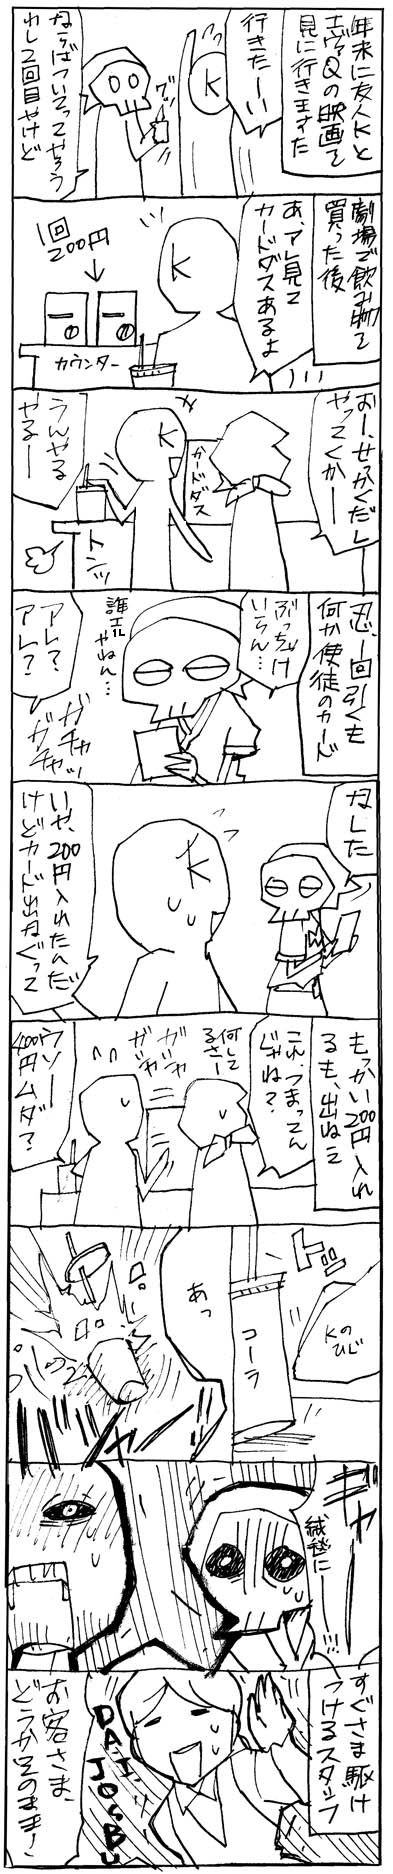 年末に友人Kと
エヴァQの映画を
見に行きました
行きたーい
K
グッ
ならばついてってやろう
わし2回目やけど
劇場で飲み物を
買った後
あ、アレ見て
カードダスあるよ
K
1回
200円
カウンター
おー、せっかくだし
やってくかー
カードダス
K
うんやる
やるー
トンッ
忍、1回引くも
何か使徒のカード
ぶっちゃけ
いらん…
誰エル
やねん…
アレ?
アレ?
ガチャッ
ガチャッ
なした
K
いや、200円入れたんだ
けどカード出なくって
もっかい200円入れ
るも、出ねえ
これ、つまってん
じゃね?
何して
るさー
ガチャ
ガチャ
ウソー
400円ムダ?
Kの
ひじ
ドンッ
コーラ
あっ
ギャー
絨毯にー!!!
すぐさま駆け
つけるスタッフ
DAIJOBU
お客さま、
どうかそのまま!